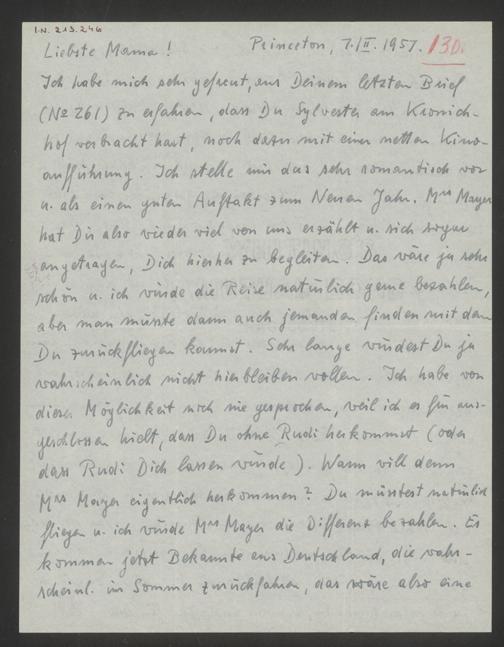 I.N. 213.246
Liebste Mama! Princeton, 7./II. 1957. 130.
Ich habe mich sehr gefreut, aus Deinem letzten Brief
(No 261) zu erfahren, dass Du Sylvester am
hof verbracht hast, noch dazu mit einer netten Kino-
aufführung. Ich stelle mir das sehr romantisch vor
u. als einen guten Auftakt zum Neuen Jahr. Mrs Mayer
hat Dir also wieder viel von uns erzählt u. sich sogar
angetragen, Dich hierher zu begleiten. Das wäre ja sehr
schön u. ich würde die Reise natürlich gerne bezahlen,
aber man müsste dann auch jemanden finden mit dem
Du zurückfliegen kannst. Sehr lange würdest Du ja
wahrscheinlich nicht hierbleiben wollen. Ich habe von
dieser Möglichkeit noch nie gesprochen, weil ich es für aus-
geschlossen hielt, dass Du ohne Rudi herkommst (oder
dass Rudi Dich lassen würde). Wann will denn
Mrs Mayer eigentlich herkommen? Du müsstest natürlich
fliegen u. ich würde Mrs Mayer die Differenz bezahlen. Es
kommen jetzt Bekannte aus Deutschland, die wahr-
scheinl. im Sommer zurückfahren, das wäre also eine